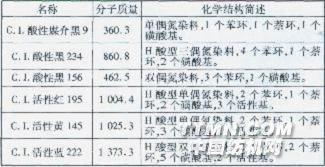 名称 分子质量 化学结构简述
C.I.酸性媒介黑9 360.3 单偶氮染料,1个苯环,1个萘环,1个磺酸基。
C.I.酸性黑234 860.8 H酸型三偶氮染料,4个苯环,1个萘环,2个磺酸基。
C.I.酸性黑156 462.5 双偶氮染料,3个苯环,1个磺酸基。
C.I.活性红195 1 004.4 H酸型单偶氮染料,2个苯环,1个萘环,4个磺酸基,3个活性基。
C.I.活性黄145 1 025.3 H酸型单偶氮染料,2个苯环,1个萘环,3个
C.I.活性蓝222 1 373.3 H酸型双
环,5个磺酸基,2个活性基。